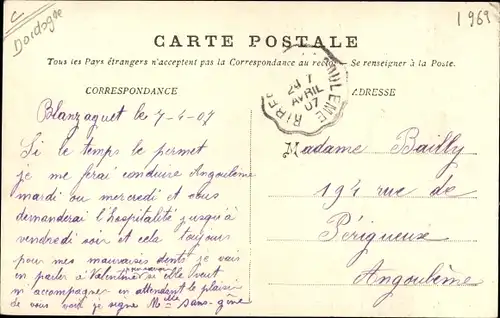 C
Dordogne
1969
CARTE POSTALE
Tous les Pays étrangers n'acceptent pas la Correspondance au recto. - Se renseigner à la Poste.
CORRESPONDANCE
ADRESSE
RIBE ANGOULEME
7
AVRIL
07
Blanzaguet le 7-4-07
Si le temps le permet
je me ferai conduire Angoulême
mardi ou mercredi et vous
demanderai l'hospitalité jusqu'à
vendredi soir et cela toujours
pour mes mauvaises dents je vais
en parler à Valentine pour savoir si elle veut
m'accompagner en attendant le plaisir
de vous voir je signe Melle Sans-gêne
Madame Bailly
194 rue de
Périgueux
Angoulême